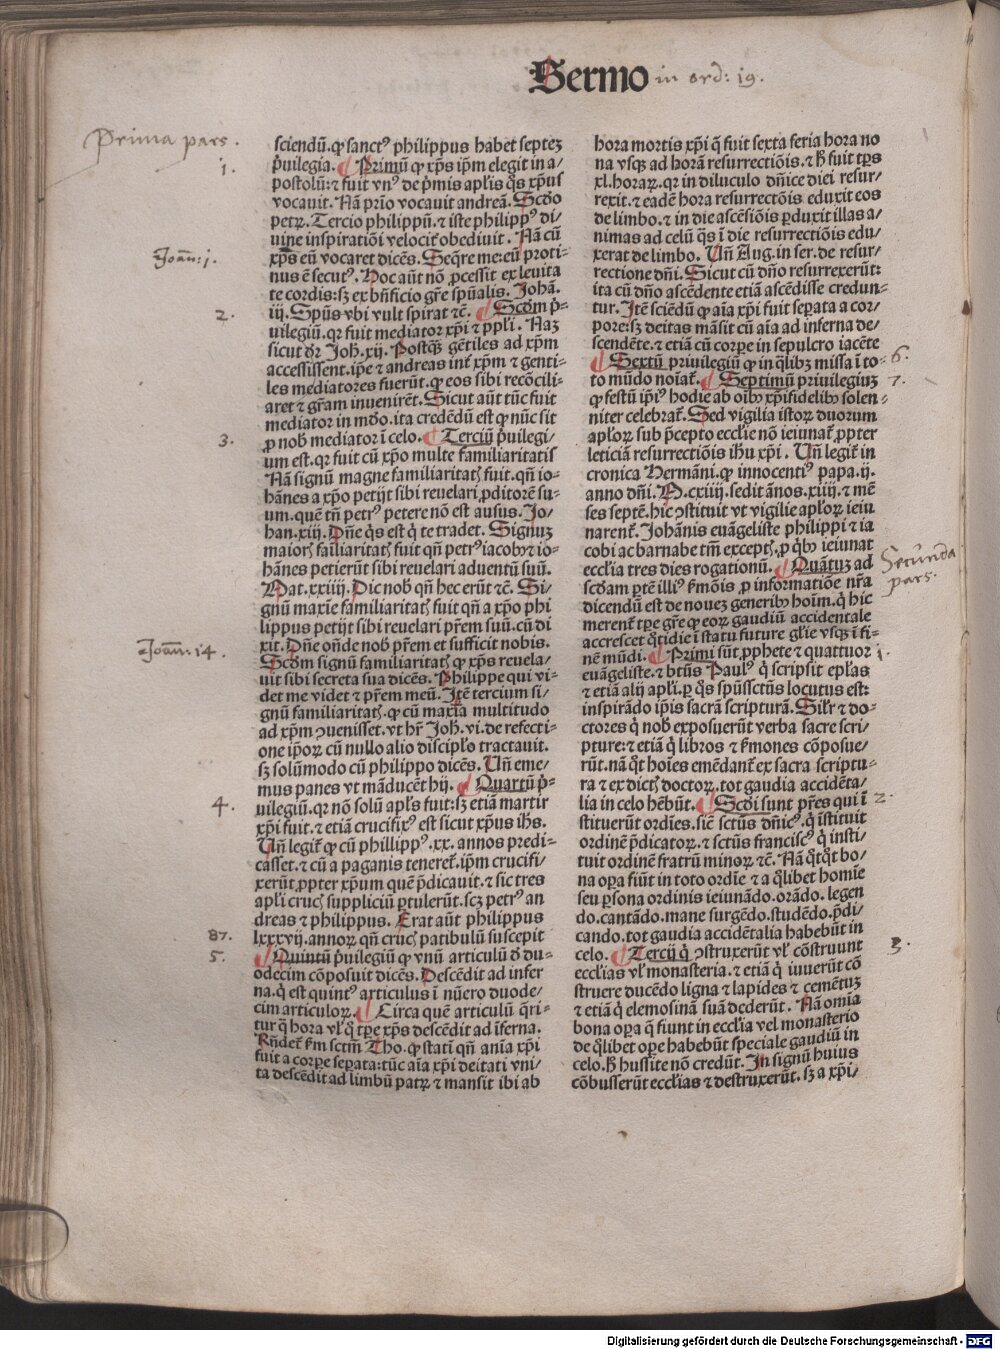 Sermo in ord: 19.
Prima pars.
1.
Joan: 1.
2.
3.
Joan: 14.
4.
87.
5.
sciendū. ꝙ sanctꝰ philippus habet septeꝫ
p̄uilegia. ¶ Primū ꝙ xp̄s ip̄m elegit in a/
postolū: ⁊ fuit vnꝰ de p̄mis apl̄is q̄s xp̄us
vocauit. Nā prīo vocauit andreā. Scd̄o
petrꝫ. Tercio philippū. ⁊ iste philippꝰ di/
uine inspiratiōi velocit̄ obediuit. Nā cū
xp̄s eū vocaret dicēs. Seq̄re me: eū proti-
nus ē secutꝰ. Hoc aūt nō ꝓcessit ex leuita
te cordis: sꝫ ex bn̄ficio gr̄e spūalis. Johā.
iij. Spūs vbi vult spirat ⁊c̄. ¶ Scd̄m p̄-
uilegiū. qꝛ fuit mediator xp̄i ⁊ ppl̄i. Naꝫ
sicut dr̄ Joh̄. xij. Postqꝫ gētiles ad xp̄m
accessissent. ip̄e ⁊ andreas int̄ xp̄m ⁊ genti-
les mediatores fuerūt. ꝙ eos sibi recōcili-
aret ⁊ gr̄am inuenirēt. Sicut aūt tūc fuit
mediator in mūdo. ita credēdū est ꝙ nūc sit
ꝓ nob̄ mediator ī celo. ¶ Terciū p̄uilegi/
um est. qꝛ fuit cū xp̄o multe familiaritatis
Nā signū magne familiaritatꝭ fuit. qn̄ io-
hānes a xp̄o petijt sibi reuelari ꝓditorē su-
um. quē tn̄ petrꝰ petere nō est ausus. Jo/
han. xiij. Dn̄e q̄s est q̇ te tradet. Signuꝫ
maiorꝭ fāiliaritatꝭ fuit qn̄ petrꝰ iacobꝰ ⁊ io-
hānes petierūt sibi reuelari aduentū suū.
Mat. xxiiij. Dic nob̄ qn̄ hec erūt ⁊c̄. Si-
gnū maxīe familiaritatꝭ fuit qn̄ a xp̄o phi
lippus petijt sibi reuelari pr̄em suū. cū di
xit. Dn̄e on̄de nob̄ pr̄em et sufficit nobis.
Scd̄m signū familiaritatꝭ ꝙ xp̄s reuela/
uit sibi secreta sua dicēs. Philippe qui vi-
det me videt ⁊ pr̄em meū. Jtē tercium si/
gnū familiaritatꝭ. ꝙ cū maxīa multitudo
ad xp̄m ꝯuenisset. vt hr̄ Joh̄. vi. de refecti-
one ip̄oꝝ cū nullo alio discipl̄o tractauit.
sꝫ solūmodo cū philippo dicēs. Un̄ eme/
mus panes vt māducēt hij. ¶ Quartū p̄-
uilegiū. qꝛ nō solū apl̄s fuit: sꝫ etiā martir
xp̄i fuit. ⁊ etiā crucifixꝰ est sicut xp̄us ih̄s.
Un̄ legit̄ ꝙ cū phillippꝰ. xx. annos predi-
casset. ⁊ cū a paganis teneret̄. ip̄m crucifi/
xerūt ꝓpter xp̄um quē p̄dicauit. ⁊ sic tres
apl̄i crucꝭ suppliciū ꝑtulerūt. scꝫ petrꝰ an
dreas ⁊ philippus. Erat aūt philippus
lxxxvij. annoꝝ qn̄ crucꝭ patibulū suscepit
¶ Quintū p̄uilegiū ꝙ vnū articulū d̄ du-
odecim cōposuit dicēs. Descēdit ad infer
na. q̇ est quintꝰ articulus ī nūero duode/
cim articuloꝝ. ¶ Circa quē articulū q̄ri-
tur q̄ hora vl̄ q̇ tꝑe xp̄s descēdit ad īferna.
Rn̄det̄ s̄m sctm̄ Tho. ꝙ statī qn̄ anīa xp̄i
fuit a corꝑe seꝑata: tūc aīa xp̄i deitati vni/
ta descēdit ad limbū patꝝ ⁊ mansit ibi ab
hora mortis xp̄i q̄ fuit sexta feria hora no
na vsqꝫ ad horā resurrectiōis. ⁊ h̄ fuit tꝑs
xl. horaꝝ. qꝛ in diluculo dn̄ice diei resur/
rexit. ⁊ eadē hora resurrectiōis eduxit eos
de limbo. ⁊ in die ascēsiōis ꝑduxit illas a/
nimas ad celū q̄s ī die resurrectiōis edu/
xerat de limbo. Un̄ Aug. in ser. de resur/
rectione dn̄i. Sicut cū dn̄o resurrexerūt:
ita cū dn̄o ascēdente etiā ascēdisse credun-
tur. Jtē sciēdū ꝙ aīa xp̄i fuit seꝑata a cor/
pore: sꝫ deitas māsit cū aīa ad inferna de/
scendēte. ⁊ etiā cū corꝑe in sepulcro iacēte
¶ Sextū priuilegiū ꝙ in q̄libꝫ missa ī to-
to mūdo noīat̄. ¶ Septimū priuilegiuꝫ
ꝙ festū ip̄iꝰ hodie ab oībꝰ xp̄ifidelibꝰ solen/
niter celebrat̄. Sed vigilia istoꝝ duorum
apl̄oꝝ sub p̄cepto eccl̄ie nō ieiunat̄ ꝓpter
leticiā resurrectiōis ih̄u xp̄i. Un̄ legit̄ in
cronica Hermāni. ꝙ innocentiꝰ papa. ij.
anno dn̄i. M. cxiiij. sedit ānos. xiiij. ⁊ mē
ses septē. hic ꝯstituit vt vigilie apl̄oꝝ ieiu
narent̄. Johānis euāgeliste philippi ⁊ ia
cobi ac barnabe tm̄ exceptꝭ. ꝓ q̇bꝰ ieiunat
eccl̄ia tres dies rogationū. ¶ Quātuꝫ ad
scd̄am ꝑtē illiꝰ s̄mōis ꝓ informatiōe nr̄a
dicendū est de nouez generibꝰ hoīm. q̇ hic
merent̄ tꝑe gr̄e ꝙ eoꝝ gaudiū accidentale
accrescet q̇tidie ī statu future gl̄ie vsqꝫ ī fi-
nē mūdi. ¶ Primi sūt ꝓphete ⁊ quattuor
euāgeliste. ⁊ bt̄us Paulꝰ q̇ scripsit ep̄l̄as
⁊ etiā alij apl̄i. ꝑ q̄s spūssctūs locutus est:
inspirādo ip̄is sacrā scripturā. Sil̄r ⁊ do-
ctores q̇ nob̄ exposuerūt verba sacre scri/
pture: ⁊ etiā q̇ libros ⁊ s̄mones cōposue/
rūt. nā q̇t hoīes emēdant̄ ex sacra scriptu-
ra ⁊ ex dictꝭ doctoꝝ. tot gaudia accidēta/
lia in celo hēbūt. ¶ Scd̄i sunt pr̄es qui ī
stituerūt ordīes. sicut̄ sctūs dn̄icꝰ. q̇ īstituit
ordinē p̄dicatoꝝ. ⁊ sctūs franciscꝰ q̇ insti/
tuit ordinē fratrū minoꝝ ⁊c̄. Nā q̇tq̇t bo/
na oꝑa fiūt in toto ordīe ⁊ a q̄libet homīe
seu ꝑsona ordinis ieiunādo. orādo. legen
do. cantādo. mane surgēdo. studēdo. p̄di/
cando. tot gaudia accidētalia habebūt in
celo. ¶ Tercij q̇ ꝯstruxerūt vl̄ cōstruunt
eccl̄ias vl̄ monasteria. ⁊ etiā q̇ iuuerūt cō
struere ducēdo ligna ⁊ lapides ⁊ cemētuꝫ
⁊ etiā q̇ elemosinā suā dederūt. Nā omīa
bona oꝑa q̄ fiunt in eccl̄ia vel monasterio
de q̄libet oꝑe habebūt speciale gaudiū in
celo. h̄ hussite nō credūt. In signū huius
cōbusserūt eccl̄ias ⁊ destruxerūt. sꝫ a xp̄i/
6.
7.
Secunda
pars.
1.
2.
3.
Digitalisierung gefördert durch die Deutsche Forschungsgemeinschaft - DFG